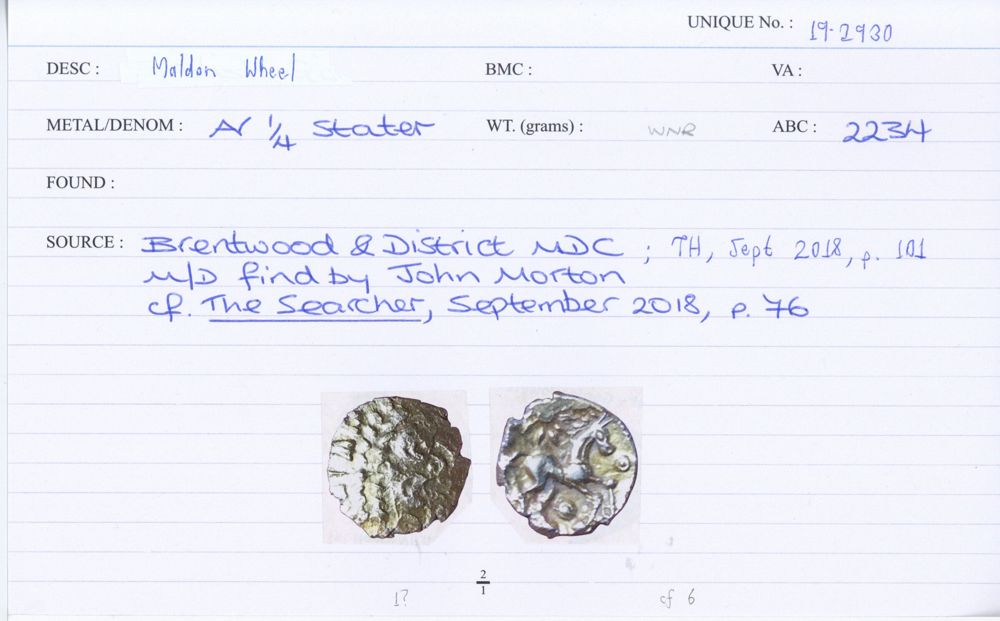 UNIQUE No. : 19-2930
DESC : Maldon Wheel BMC : VA :
METAL/DENOM : AV 1/4 Stater WT. (grams) : WNR ABC : 2234
FOUND :
SOURCE : Brentwood & District MDC ; TH, Sept 2018, p. 101
M/D find by John Morton
cf. The Searcher, September 2018, p. 76
2
1
1? cf 6